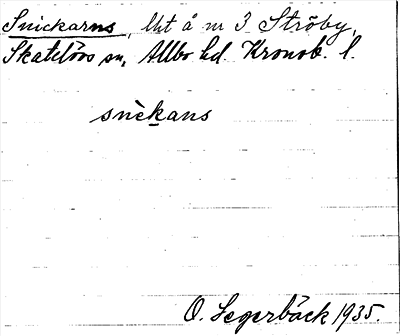 Snickarns, lht å nr 3 Ströby,
Skatelövs sn, Allbo hd. Kronob. l.
snèkans
O. Segerbäck 1935.